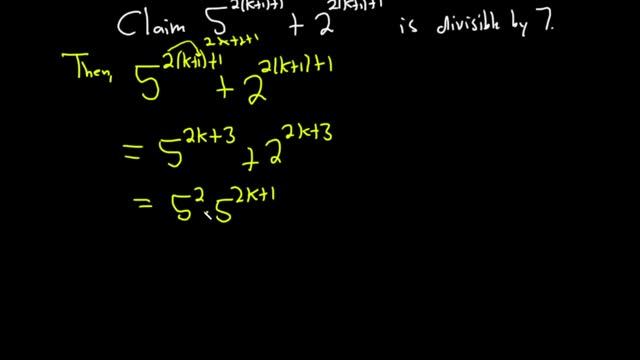 Claim 5^{2(k+1)+1} + 2^{2(k+1)+1} is divisible by 7.
2k+2+1
Then, 5^{2(k+1)+1} + 2^{2(k+1)+1}
= 5^{2k+3} + 2^{2k+3}
= 5^2 · 5^{2k+1}